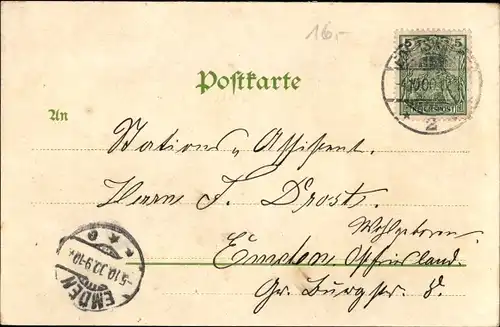 160,-
5 5
REICHSPOST
2
Postkarte
An
Stations-Assistent.
Herrn F. Drost.
Wohlgeboren
Emden Ostfriesland.
Gr. Burgstr. 8.
EMDEN
5.10.02.9-10